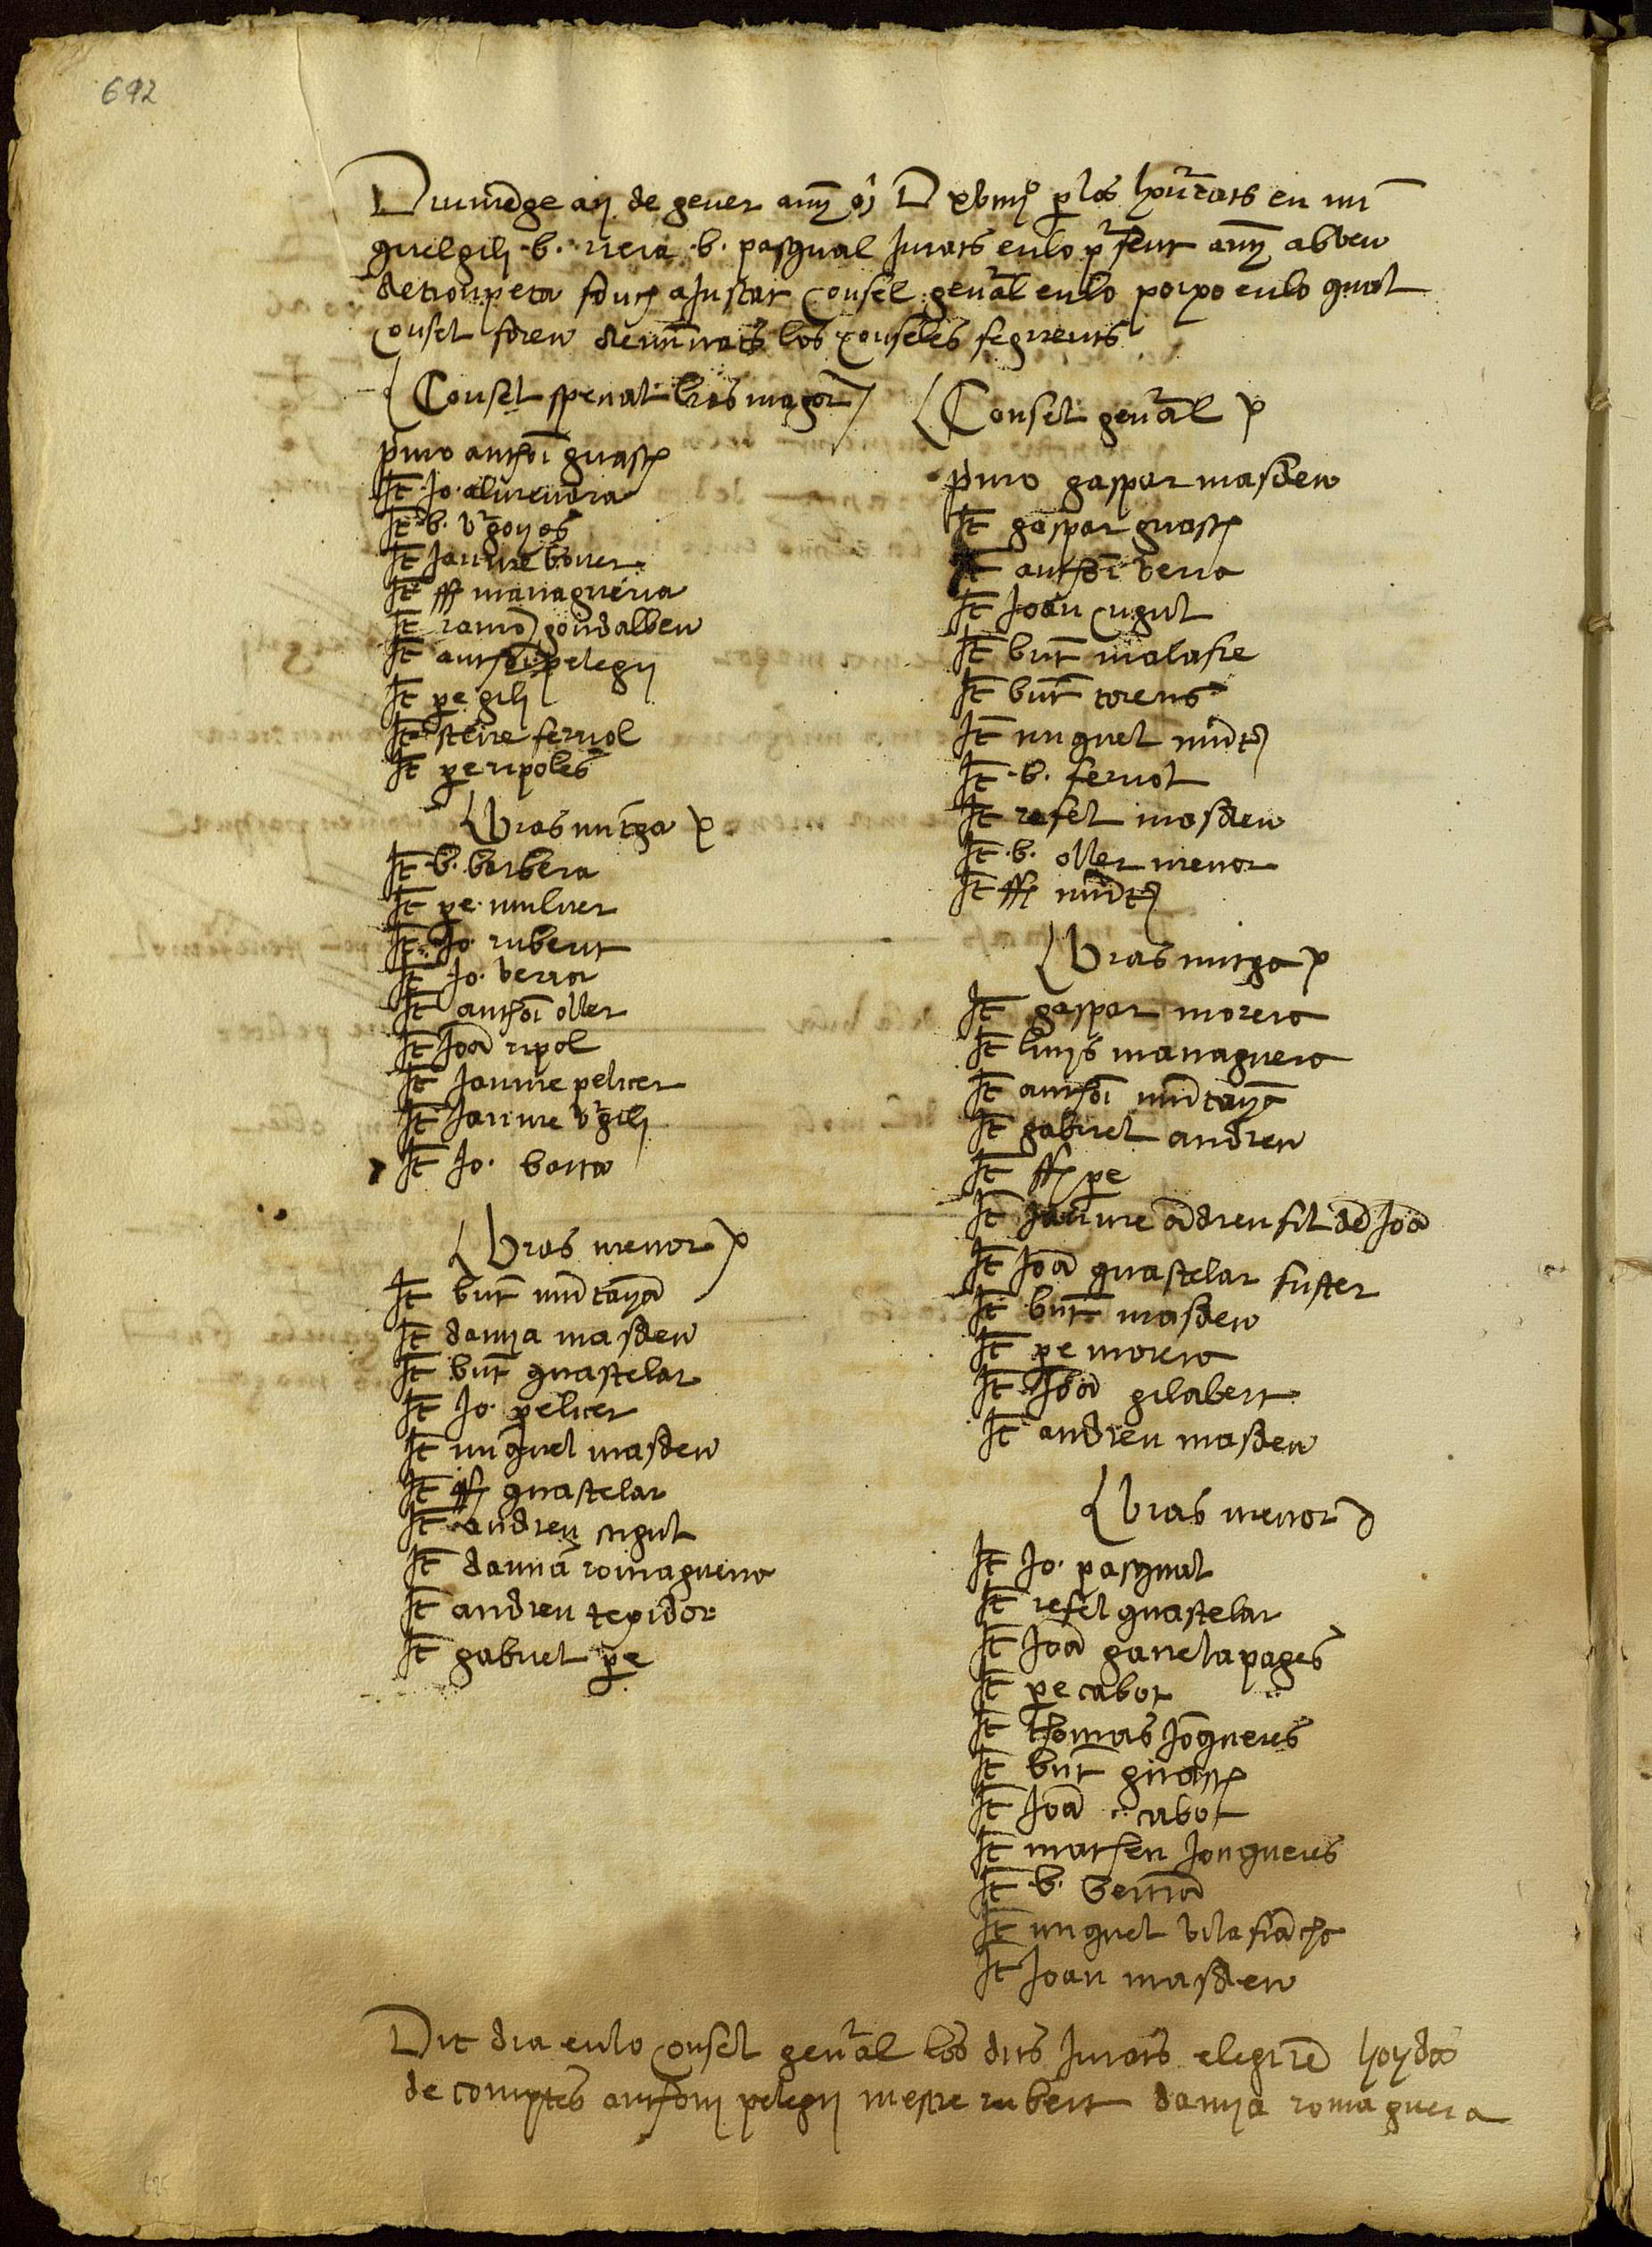 692
Diumẽge a ij de gener any mj D xviiij per los honrats en mi
guel gili .b. riera .b. pasqual Jurats en lo present any ab veu
de trompeta fonch aJustat Consel general en lo porxo en lo qual
Consel foren denminats los conselês seguents
Consel spenat bras magor
primo anthoi guasch
It Jo. almenara
It .b. vrgoyos
It Jaume bover
It ff managuerra
It ramõ gondalbeu
It anthoi pelegri
It pe gili
It steve ferriol
It pe ripoles
bras miga
It .b. barbera
It pe muliner
It Jo. rubert
It Jo. verra
It anthoi oller
It Joã ripol
It Jaume pelicer
It Jaume vrgili
It Jo. barra
bras menor
It bnt mũtayã
It damia masdeu
It bnt guastelar
It Jo. pelicer
It miguel masdeu
It ff guastelar
It andreu cugul
It damiã romaguera
It andreu texidor
It gabriel pe
Consel general
primo gaspar masdeu
It gaspar guasch
It anthoi verra
It Joan cugul
It bnt malafre
It bnt torens
It miguel mũt
It .b. ferriol
It rafel masdeu
It .b. oller menor
It ff mũt
bras miga
It gaspar morera
It luys managuera
It anthoi mũtayã
It gabriel andreu
It ff pe
It Jaume ãdreu fil de Joã
It Joã guastelar fuster
It bnt masdeu
It pe morera
It Joã gilabert
It andreu masdeu
bras menor
It Jo. pasqual
It refel guastelar
It Joã garreta pages
It pe cabot
It thomas Jõqueres
It bnt guasch
It Joã cabot
It matheu Jonqueres
It .b. bertrã
It miguel vilafrãcha
It Joan masdeu
Dit dia en lo Consel general los dits Jurats elegirẽ hoydos
de comptes anthoni pelegri mestre rubert damia romaguera